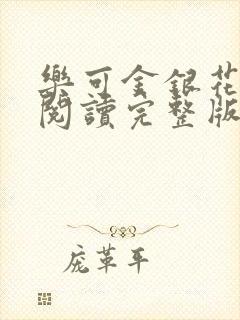 樂可金銀花
閱讀完整版
庞革平